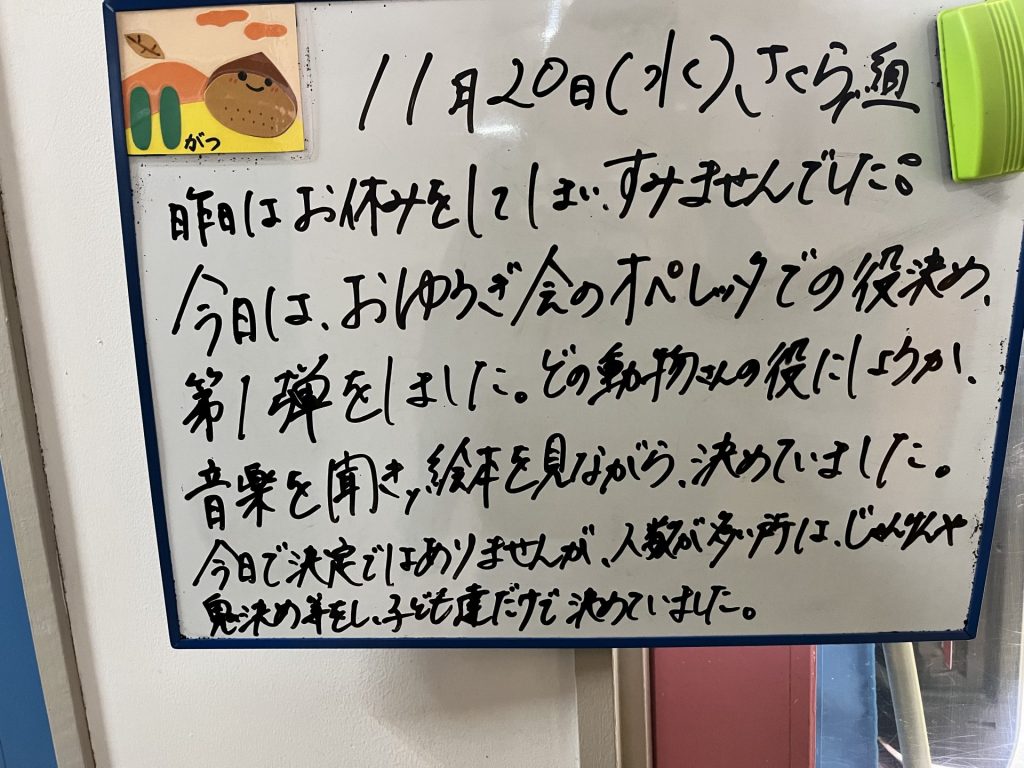 11がつ
11月20日(水)、さくら組
昨日はお休みをしてしまい、すみませんでした。
今日は、おゆうぎ会のオペレッタでの役決め、
第1弾をしました。どの動物さんの役にしようか、
音楽を聞き、絵本を見ながら、決めていました。
今日で決定ではありませんが、人数が多い所は、じゃんけんや
鬼決め等をし、子ども達だけで決めていました。